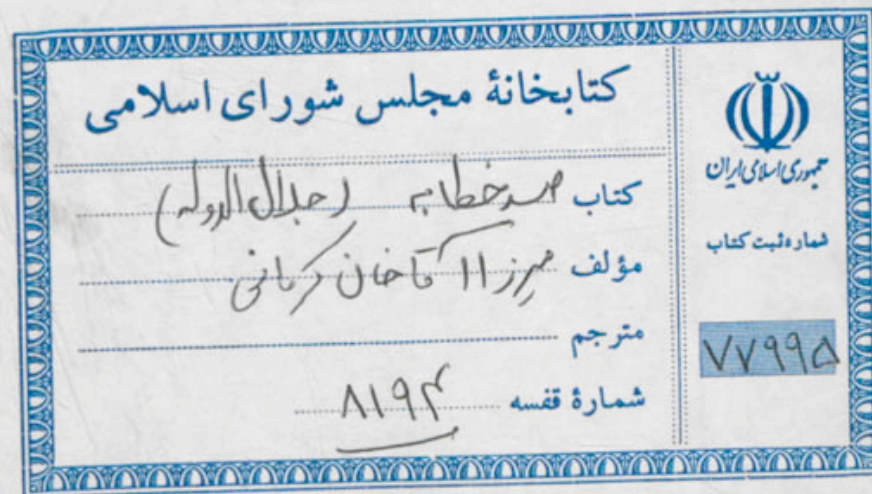 کتابخانهٔ مجلس شورای اسلامی
کتاب صد خطابه (جلال الدوله)
مؤلف میرزا آقاخان کرمانی
مترجم
شمارهٔ قفسه ۸۱۹۴
جمهوری اسلامی ایران
شماره ثبت کتاب
۷۷۹۹۵